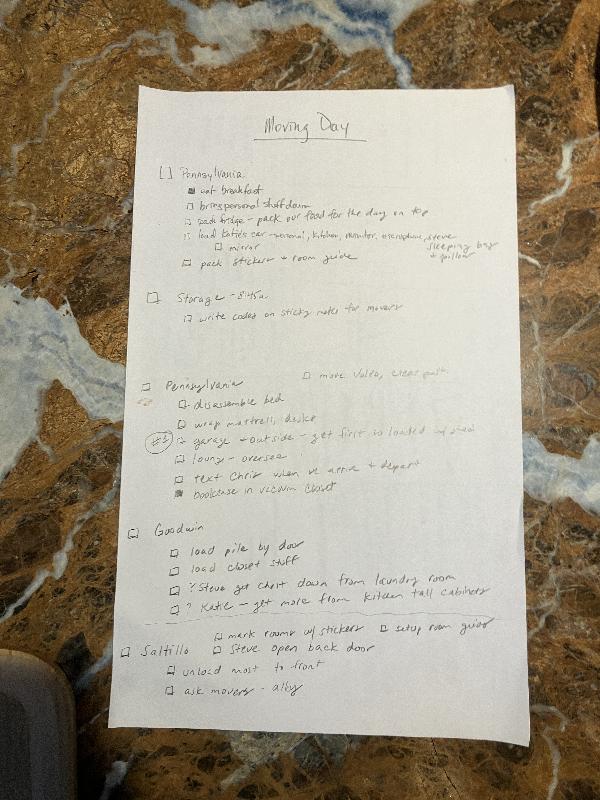 Moving Day
[ ] Pennsylvania
eat breakfast
bring personal stuff down
pack fridge - pack our food for the day on top
load Katie's car - personal, kitchen, monitor, microphone, steve
sleeping bag
+ pillow
mirror
pack stickers + room guide
Storage - 8:45a
write codes on sticky notes for movers
Pennsylvania
move Volvo, clear path
disassemble bed
wrap mattress,
#1 garage + outside - get first so loaded w/
- oversee
text Chris when we arrive + depart
bookcase in vacuum closet
Goodwin
load pile by door
load closet stuff
? Steve get chest down from laundry room
? Katie - get more from kitchen tall cabinets
mark rooms w/ stickers
setup room guide
Saltillo
Steve open back door
unload most to front
ask movers - alley